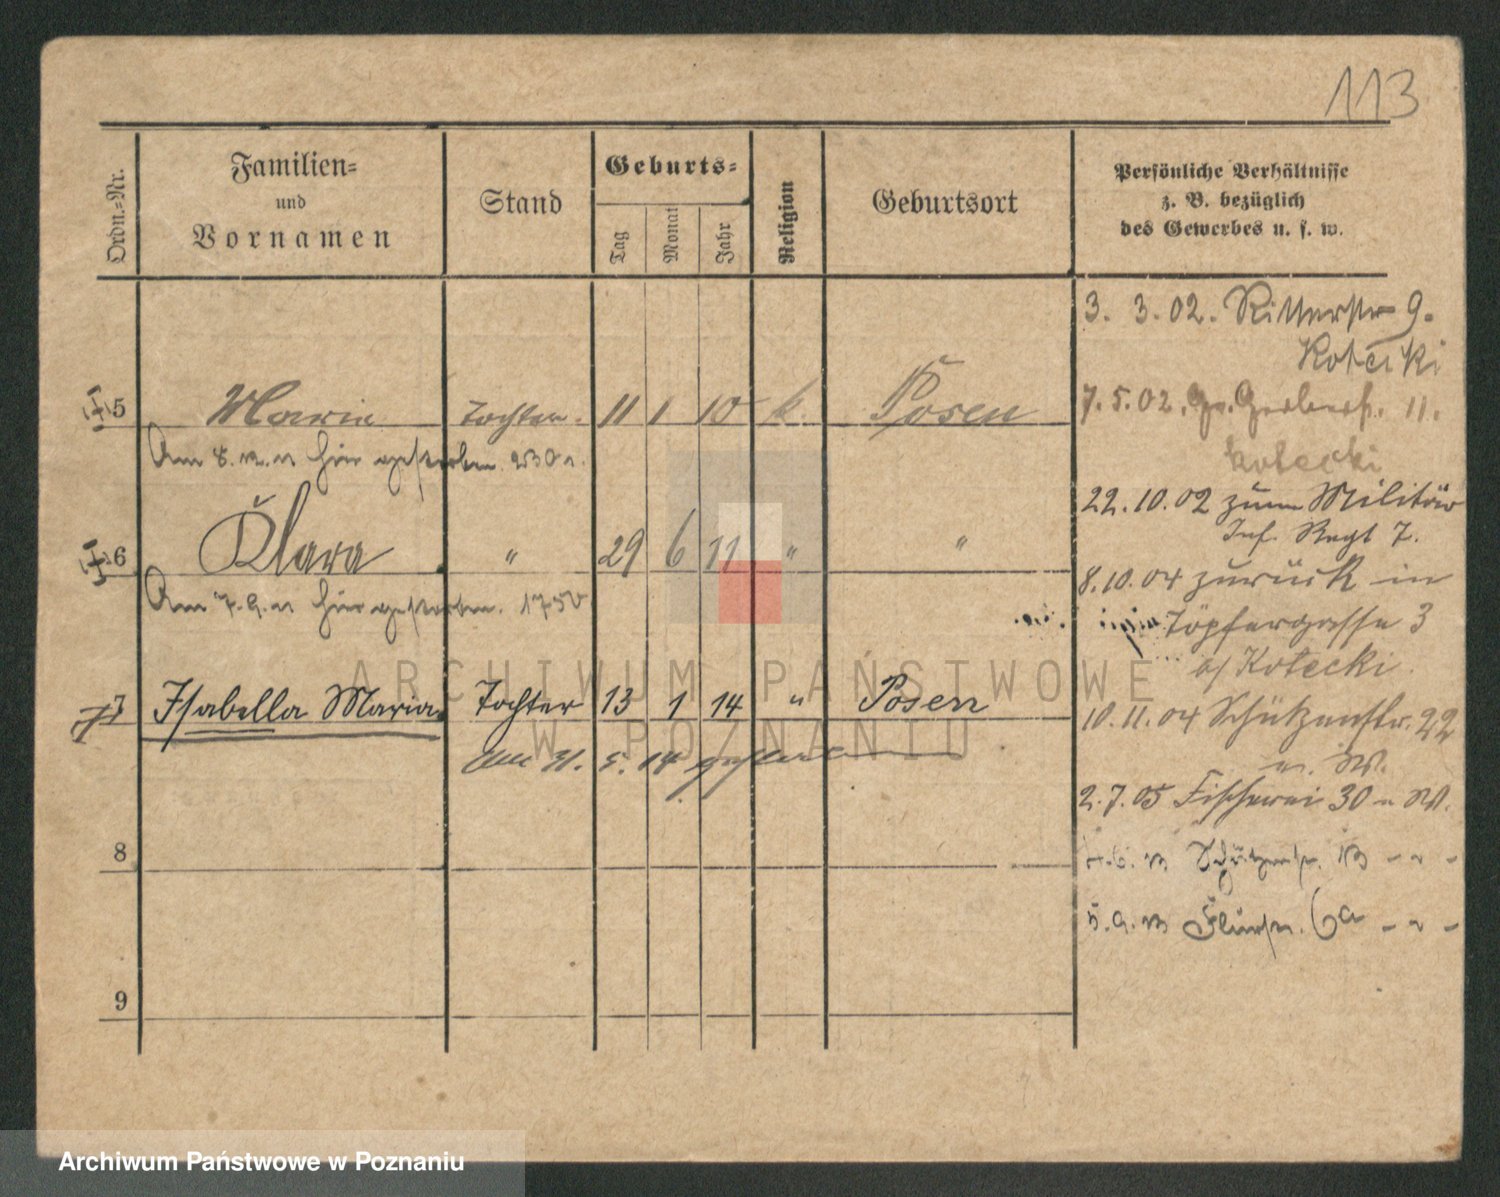 113
Ordn.-Nr.
Familien-
und
Vornamen
Stand
Geburts-
Tag
Monat
Jahr
Religion
Geburtsort
Persönliche Verhältnisse
z. B. bezüglich
des Gewerbes u. s. w.
3. 3. 02. Ritterstr 9.
Kotecki
5 Maria Tochter. 11 1 10 k. Posen
7. 5. 02. Gr. Gerberstr. 11.
Kotecki
Am 8. 12. 11 hier gestorben.
22. 10. 02 zum Militär
Inf. Regt 7.
6 Klara " 29 6 11 " "
8. 10. 04 zurück in
Am 7. 9. 11 hier gestorben. 1750
Töpfergasse 3
b/ Kotecki
ARCHIWUM PAŃSTWOWE
W POZNANIU
7 Isabella Maria Tochter 13 1 14 " Posen
10. 11. 04 Schützenstr. 22
5. 14 gestorben
2. 7. 05 Fischerei 30
8
Schützenstr. 13
Flurstr. 6a
9
Archiwum Państwowe w Poznaniu